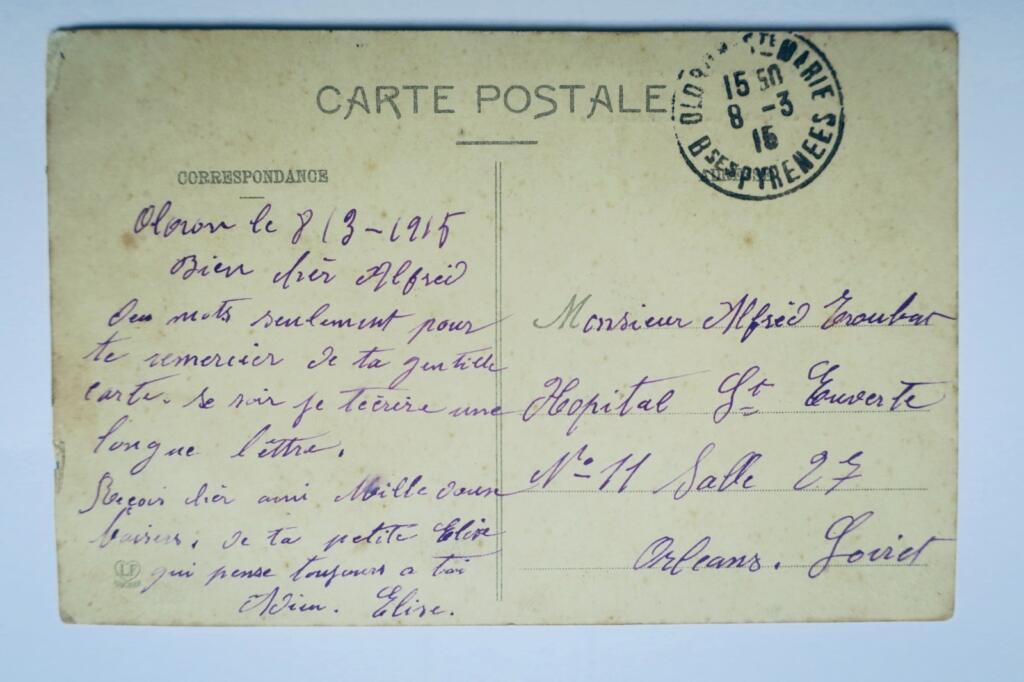 CARTE POSTALE
OLORON-STE-MARIE
15 50
8 -3
15
BSES PYRENEES
CORRESPONDANCE
Oloron le 8/3-1915
Bien chèr Alfréd
deux mots seulement pour
te remercier de ta gentille
carte. se soir je técrire une
longue lèttre.
Reçois chèr ami Mille doux
baisers. de ta petite Elise
qui pense toujours a toi
Adieu. Elise.
LF
Monsieur Alfréd Troubat
Hopital St Euverte
No-11 Salle 27
Orleans. Loiret